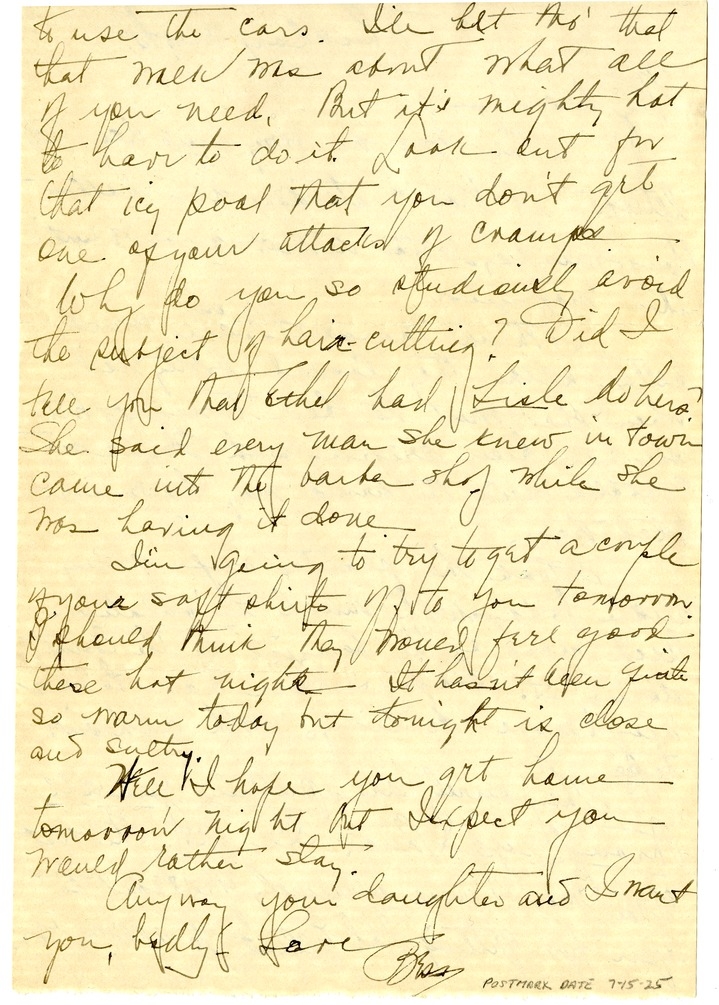 to use the cars. I'll bet tho' that
that walk was about what all
of you need. But it's mighty hot
to have to do it. Look out for
that icy pool that you don't get
one of your attacks of cramps
Why do you so studiously avoid
the subject of hair-cutting? Did I
tell you that Ethel had Lisle do hers?
She said every man she knew in town
came into the barber shop while she
was having it done.
I'm going to try to get a couple
of your soft shirts off to you tomorrow.
I should think they would feel good
these hot nights. It hasn't been quite
so warm today but tonight is close
and sultry.
Well I hope you get home
tomorrow night but I expect you
would rather stay.
Anyway your daughter and I want
you, badly. Love
Bess
POSTMARK DATE 7-15-25